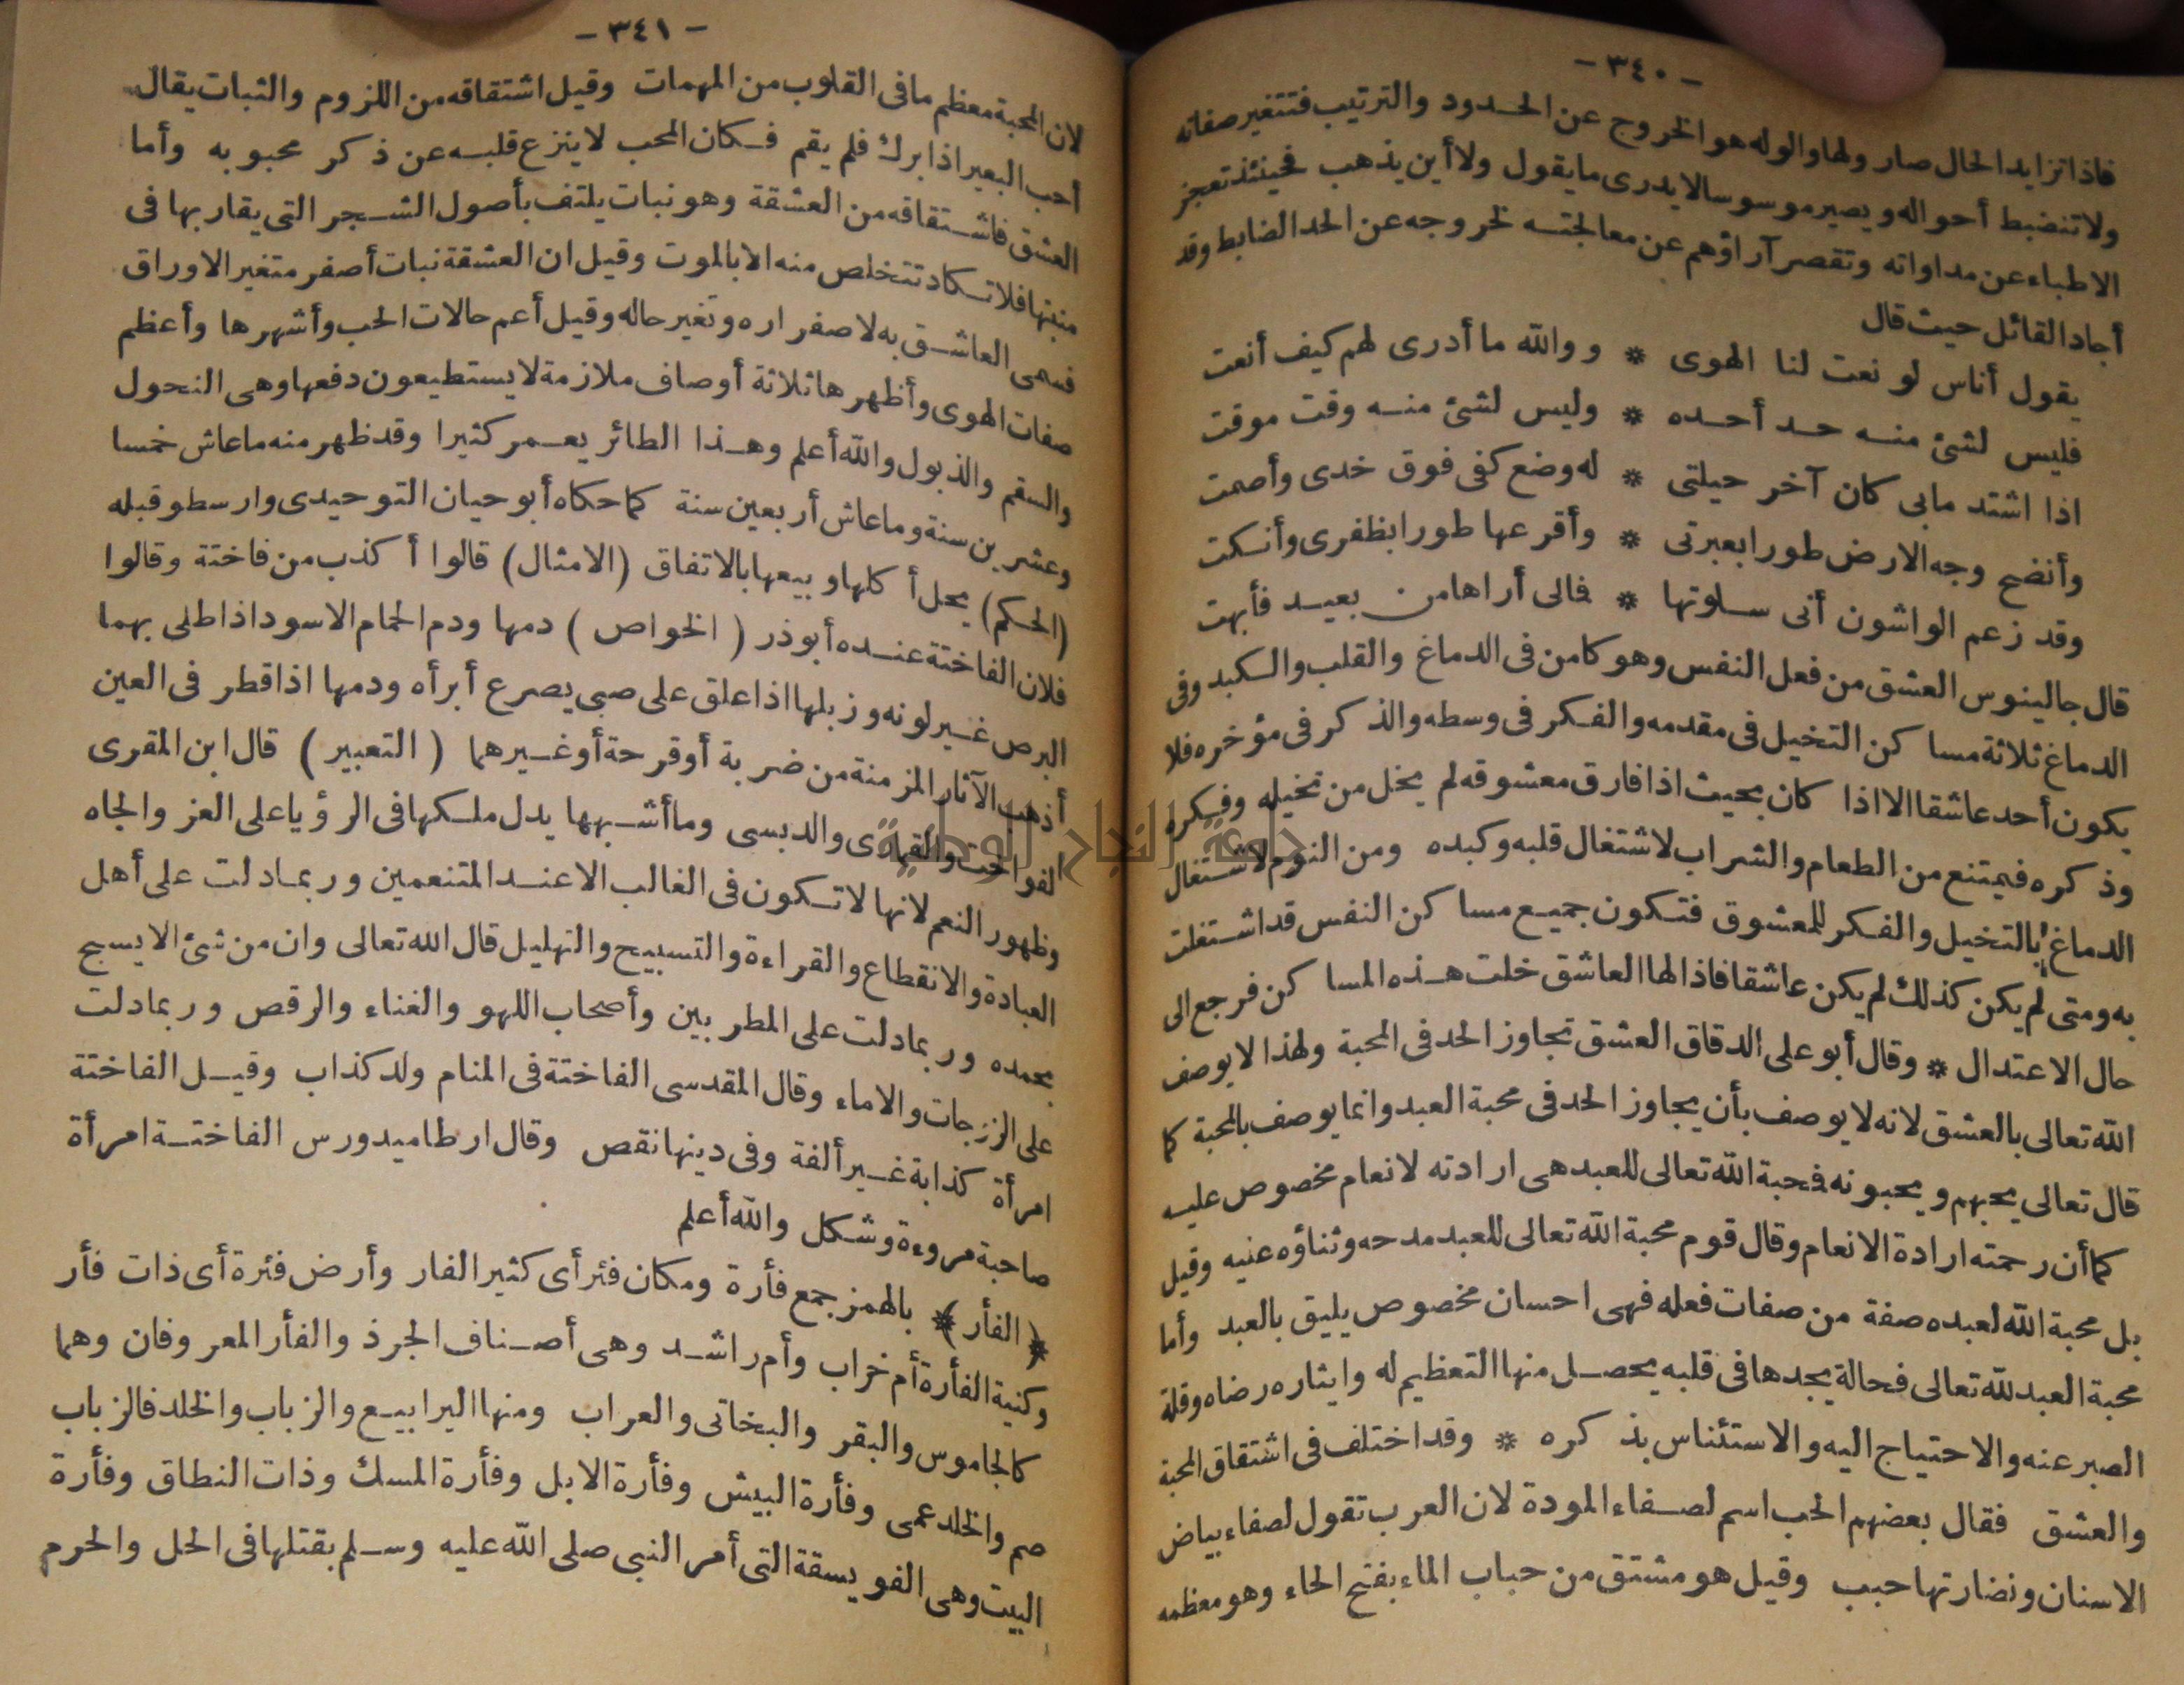 - ٣٤٠ -
فاذا تزايد الحال صار ولها والوله هو الخروج عن الحدود والترتيب فتتغير صفاته
ولا تنضبط أحواله ويصير موسوسا لا يدرى ما يقول ولا أين يذهب فحينئذ تعجز
الاطباء عن مداواته وتقصر آراؤهم عن معالجته لخروجه عن الحد الضابط وقد
أجاد القائل حيث قال
يقول أناس لو نعت لنا الهوى * ووالله ما أدرى لهم كيف أنعت
فليس لشئ منه حد أحده * وليس لشئ منه وقت موقت
اذا اشتد مابى كان آخر حيلتى * له وضع كفى فوق خدى وأصمت
وأنضح وجه الارض طورا بعبرتى * وأقرعها طورا بظفرى وأنكت
وقد زعم الواشون أنى سلوتها * فالى أراها من بعيد فأبهت
قال جالينوس العشق من فعل النفس وهو كامن فى الدماغ والقلب والكبد وفى
الدماغ ثلاثة مساكن التخيل فى مقدمه والفكر فى وسطه والذكر فى مؤخره فلا
يكون أحد عاشقا الا اذا كان بحيث اذا فارق معشوقه لم يخل من تخيله وفكره
وذكره فيمتنع من الطعام والشراب لاشتغال قلبه وكبده ومن النوم لاشتغال
الدماغ بالتخيل والفكر للمعشوق فتكون جميع مساكن النفس قد اشتغلت
به ومتى لم يكن كذلك لم يكن عاشقا فاذا لها العاشق خلت هذه المساكن فرجع الى
حال الاعتدال * وقال أبو على الدقاق العشق تجاوز الحد فى المحبة ولهذا لا يوصف
الله تعالى بالعشق لانه لا يوصف بأن يجاوز الحد فى محبة العبد وانما يوصف بالمحبة كما
قال تعالى يحبهم ويحبونه فمحبة الله تعالى للعبد هى ارادته لانعام مخصوص عليه
كما أن رحمته ارادة الانعام وقال قوم محبة الله تعالى للعبد مدحه وثناؤه عنيه وقيل
بل محبة الله لعبده صفة من صفات فعله فهى احسان مخصوص يليق بالعبد وأما
محبة العبد لله تعالى فحالة يجدها فى قلبه يحصل منها التعظيم له وايثار رضاه وقلة
الصبر عنه والاحتياج اليه والاستئناس بذكره * وقد اختلف فى اشتقاق المحبة
والعشق فقال بعضهم الحب اسم لصفاء المودة لان العرب تقول لصفاء بياض
الاسنان ونضارتها حبب وقيل هو مشتق من حباب الماء بفتح الحاء وهو معظمه
- ٣٤١ -
لان المحبة معظم ما فى القلوب من المهمات وقيل اشتقاقه من اللزوم والثبات يقال
أحب البعير اذا برك فلم يقم فكان المحب لا ينزع قلبه عن ذكر محبوبه وأما
العشق فاشتقاقه من العشقة وهو نبات يلتف بأصول الشجر التى يقاربها فى
منبتها فلا تكاد تتخلص منه الا بالموت وقيل ان العشقة نبات أصفر متغير الاوراق
فسمى العاشق به لاصفراره وتغير حاله وقيل أعم حالات الحب وأشهرها وأعظم
صفات الهوى وأظهرها ثلاثة أوصاف ملازمة لا يستطيعون دفعها وهى النحول
والسقم والذبول والله أعلم وهذا الطائر يعمر كثيرا وقد ظهر منه ما عاش خمسا
وعشرين سنة وما عاش أربعين سنة كما حكاه أبو حيان التوحيدى وارسطو قبله
(الحكم) يحل أكلها وبيعها بالاتفاق (الامثال) قالوا أكذب من فاختة وقالوا
فلان الفاختة عنده أبو ذر (الخواص) دمها ودم الحمام الاسود اذا طلى بهما
البرص غير لونه وزبلها اذا علق على صبى يصرع أبرأه ودمها اذا قطر فى العين
أذهب الآثار المزمنة من ضربة أو قرحة أو غيرهما (التعبير) قال ابن المقرى
الفواخت والقمارى والدبسى وما أشبهها يدل ملكها فى الرؤيا على العز والجاه
وظهور النعم لانها لا تكون فى الغالب الا عند المتنعمين وربما دلت على أهل
العبادة والانقطاع والقراءة والتسبيح والتهليل قال الله تعالى وان من شئ الا يسبح
بحمده وربما دلت على المطربين وأصحاب اللهو والغناء والرقص وربما دلت
على الزرجات والاماء وقال المقدسى الفاختة فى المنام ولد كذاب وقيل الفاختة
امرأة كذابة غير ألفة وفى دينها نقص وقال ارطاميدورس الفاختة امرأة
صاحبة مروءة وشكل والله أعلم
﴿ الفأر ﴾ بالهمز جمع فأرة ومكان فئر أى كثير الفار وأرض فئرة أى ذات فأر
وكنية الفأرة أم خراب وأم راشد وهى أصناف الجرذ والفأر المعروفان وهما
كالجاموس والبقر والبخاتى والعراب ومنها اليرابيع والزباب والخلد فالزباب
صم والخلد عمى وفأرة البيش وفأرة الابل وفأرة المسك وذات النطاق وفأرة
البيت وهى الفويسقة التى أمر النبى صلى الله عليه وسلم بقتلها فى الحل والحرم
جامعة النجاح الوطنية